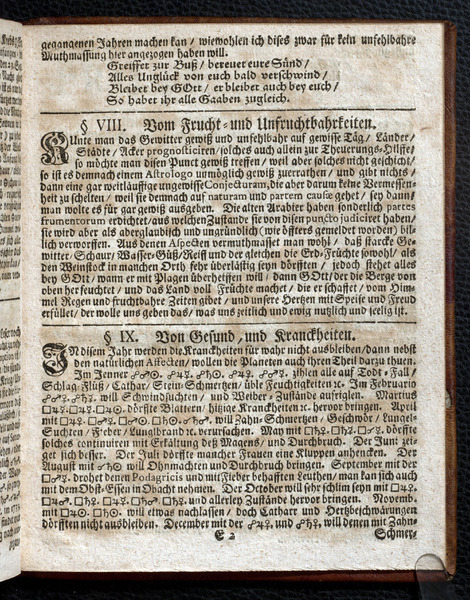 gegangenen Jahren machen kan / wiewohlen ich dises zwar für kein unfehlbahre
Muthmassung hier angezogen haben will.
Greiffet zur Buß / bereuet eure Sünd /
Alles Unglück von euch bald verschwind /
Bleibet bey GOtt / er bleibet auch bey euch /
So habet ihr alle Gaaben zugleich.
§ VIII. Vom Frucht- und Unfruchtbahrkeiten.
KUnte man das Gewitter gewiß und unfehlbahr auf gewisse Täg / Länder /
Städte / Acker prognosticiren / solches auch allein zur Theurungs-Hilffe /
so möchte man disen Punct gewiß treffen / weil aber solches nicht geschicht /
so ist es demnach einem Astrologo unmöglich gewiß zuerrathen / und gibt nichts /
dann eine gar weitläuffige ungewisse Conjecturam, die aber darum keine Vermessen-
heit zu schelten / weil sie demnach auf naturam und partem causæ gehet / sey dann /
man wolte es für gar gewiß ausgeben. Die alten Araber haben sonderlich partes
frumentorum erdichtet / aus welchen Zustande sie von disen puncto judiciret haben /
sie wird aber als aberglaubisch und ungründlich (wie öffters gemeldet worden) bil-
lich verworffen. Aus denen Aspecten vermuthmasset man wohl / daß starcke Ge-
witter / Schaur / Wasser-Güß / Reiff und der gleichen die Erd-Früchte sowohl / als
den Weinstock in manchen Orth sehr überlästig seyn dörfften / jedoch stehet alles
bey GOtt / wann er mit Plagen überheiffen will / dann GOtt / der die Berge von
oben her feuchtet / und das Land voll Früchte machet / die er schaffet / vom Him-
mel Regen und fruchtbahre Zeiten gibet / und unsere Hertzen mit Speise und Freud
erfüllet / der wolle uns geben das / was uns zeitlich und ewig nutzlich und seelig ist.
§ IX. Von Gesund- und Kranckheiten.
IN disem Jahr werden die Kranckheiten für wahr nicht ausbleiben / dann nebst
den natürlichen Affecten / wollen die Planeten auch ihren Theil darzu thun.
zihlen alle auf Todt-Fäll /
Schlag-Flüß / Cathar / Stein-Schmertzen / üble Feuchtigkeiten ꝛc. Im Februario
will Schwindsuchten / und Weiber-Zustände aufriglen. Martius
dörffte Blattern / hitzige Kranckheiten ꝛc. hervor bringen. April
will Zahn-Schmertzen / Geschwör / Lungel-
Suchten / Fieber / Lunglbrand ꝛc. verursachen. May mit dörffte
solches continuiren mit Erkältung deß Magens / und Durchbruch. Der Juni zei-
get sich besser. Der Juli dörffte mancher Frauen eine Kluppen anhencken. Der
August mit ☍♄☉ will Ohnmachten und Durchbruch bringen. September mit der
drohet denen Podagricis und mit Fieber behafften Leuthen / man kan sich auch
mit dem Obst-Essen in Obacht nehmen. Der October will sehr schlim seyn mit
und allerley Zustände hervor bringen. Novemb.
will etwas nachlassen / doch Cathar und Hertzbeschwärungen
dörfften nicht ausbleiben. December mit der will denen mit Zahn-
E 2 Schmer-